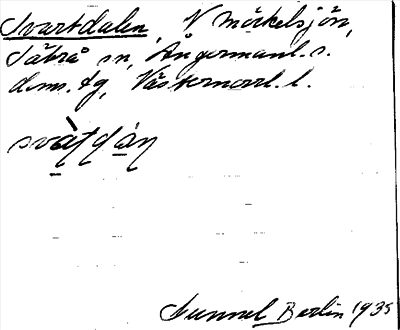 Svartdalen, N Mörkelsjön,
Säbrå sn, Ångermanl. s.
doms. tg, Västernorrl. l.
svàṭdạ̄ṇ
Gunnel Berlin 1935